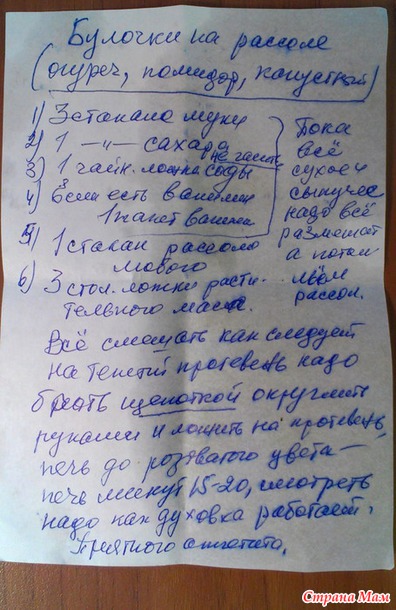 Булочки на рассоле
(огуреч, помидор, капустный)
1) 3 стакана муки
2) 1 —"— сахара
3) 1 чайн. ложка соды не гасить
4) Если есть ванилин
1 пакет ванили
5) 1 стакан рассола
любого
6) 3 стол. ложки расти-
тельного масла.
Пока
всё
сухое и
сыпучее
надо всё
размешат
а потом
льём
рассол.
Всё смешать как следует
на
противень надо
брать щепоткой округлить
руками и ложить на противень,
печь до розоватого цвета —
печь минут 15-20, смотреть
надо как духовка работает.
Приятного аппетита.
Страна Мам